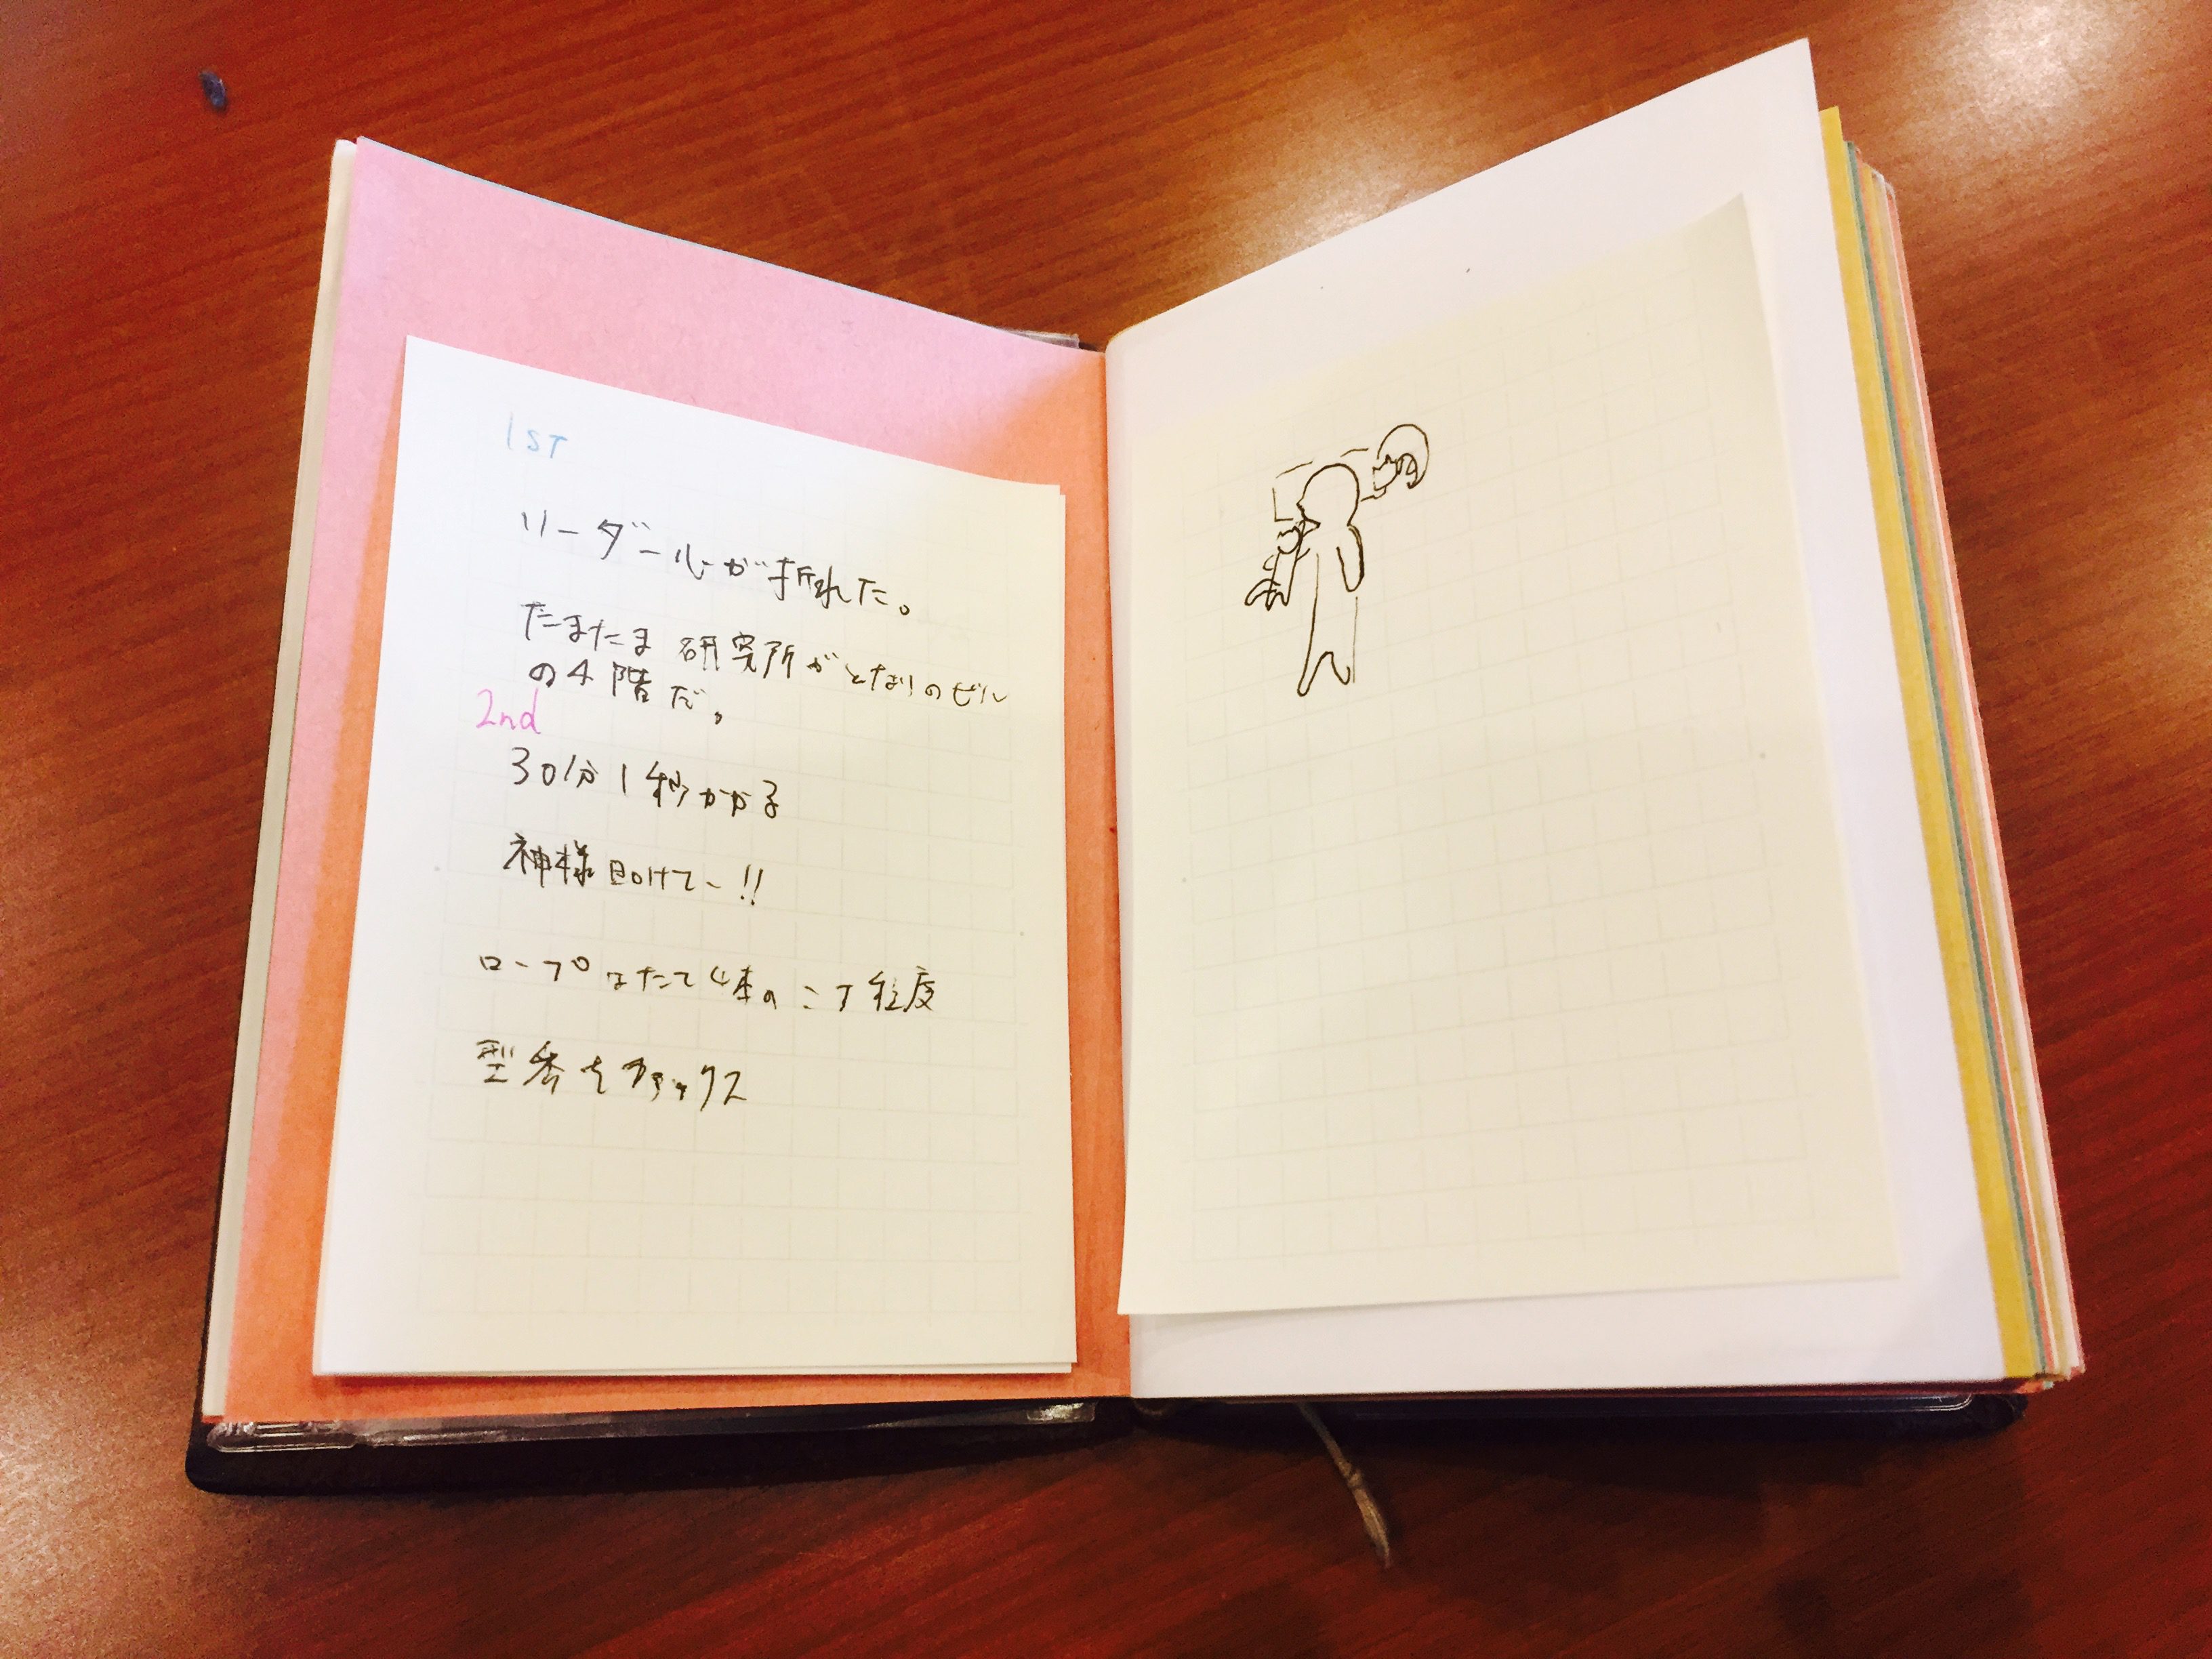 1ST
リーダー心が折れた。
たまたま 研究所がとなりのビル
の4階だ。
2nd
30分1秒かかる
神様助けてー!!
ロープはたて4本の 程度
型番をファックス